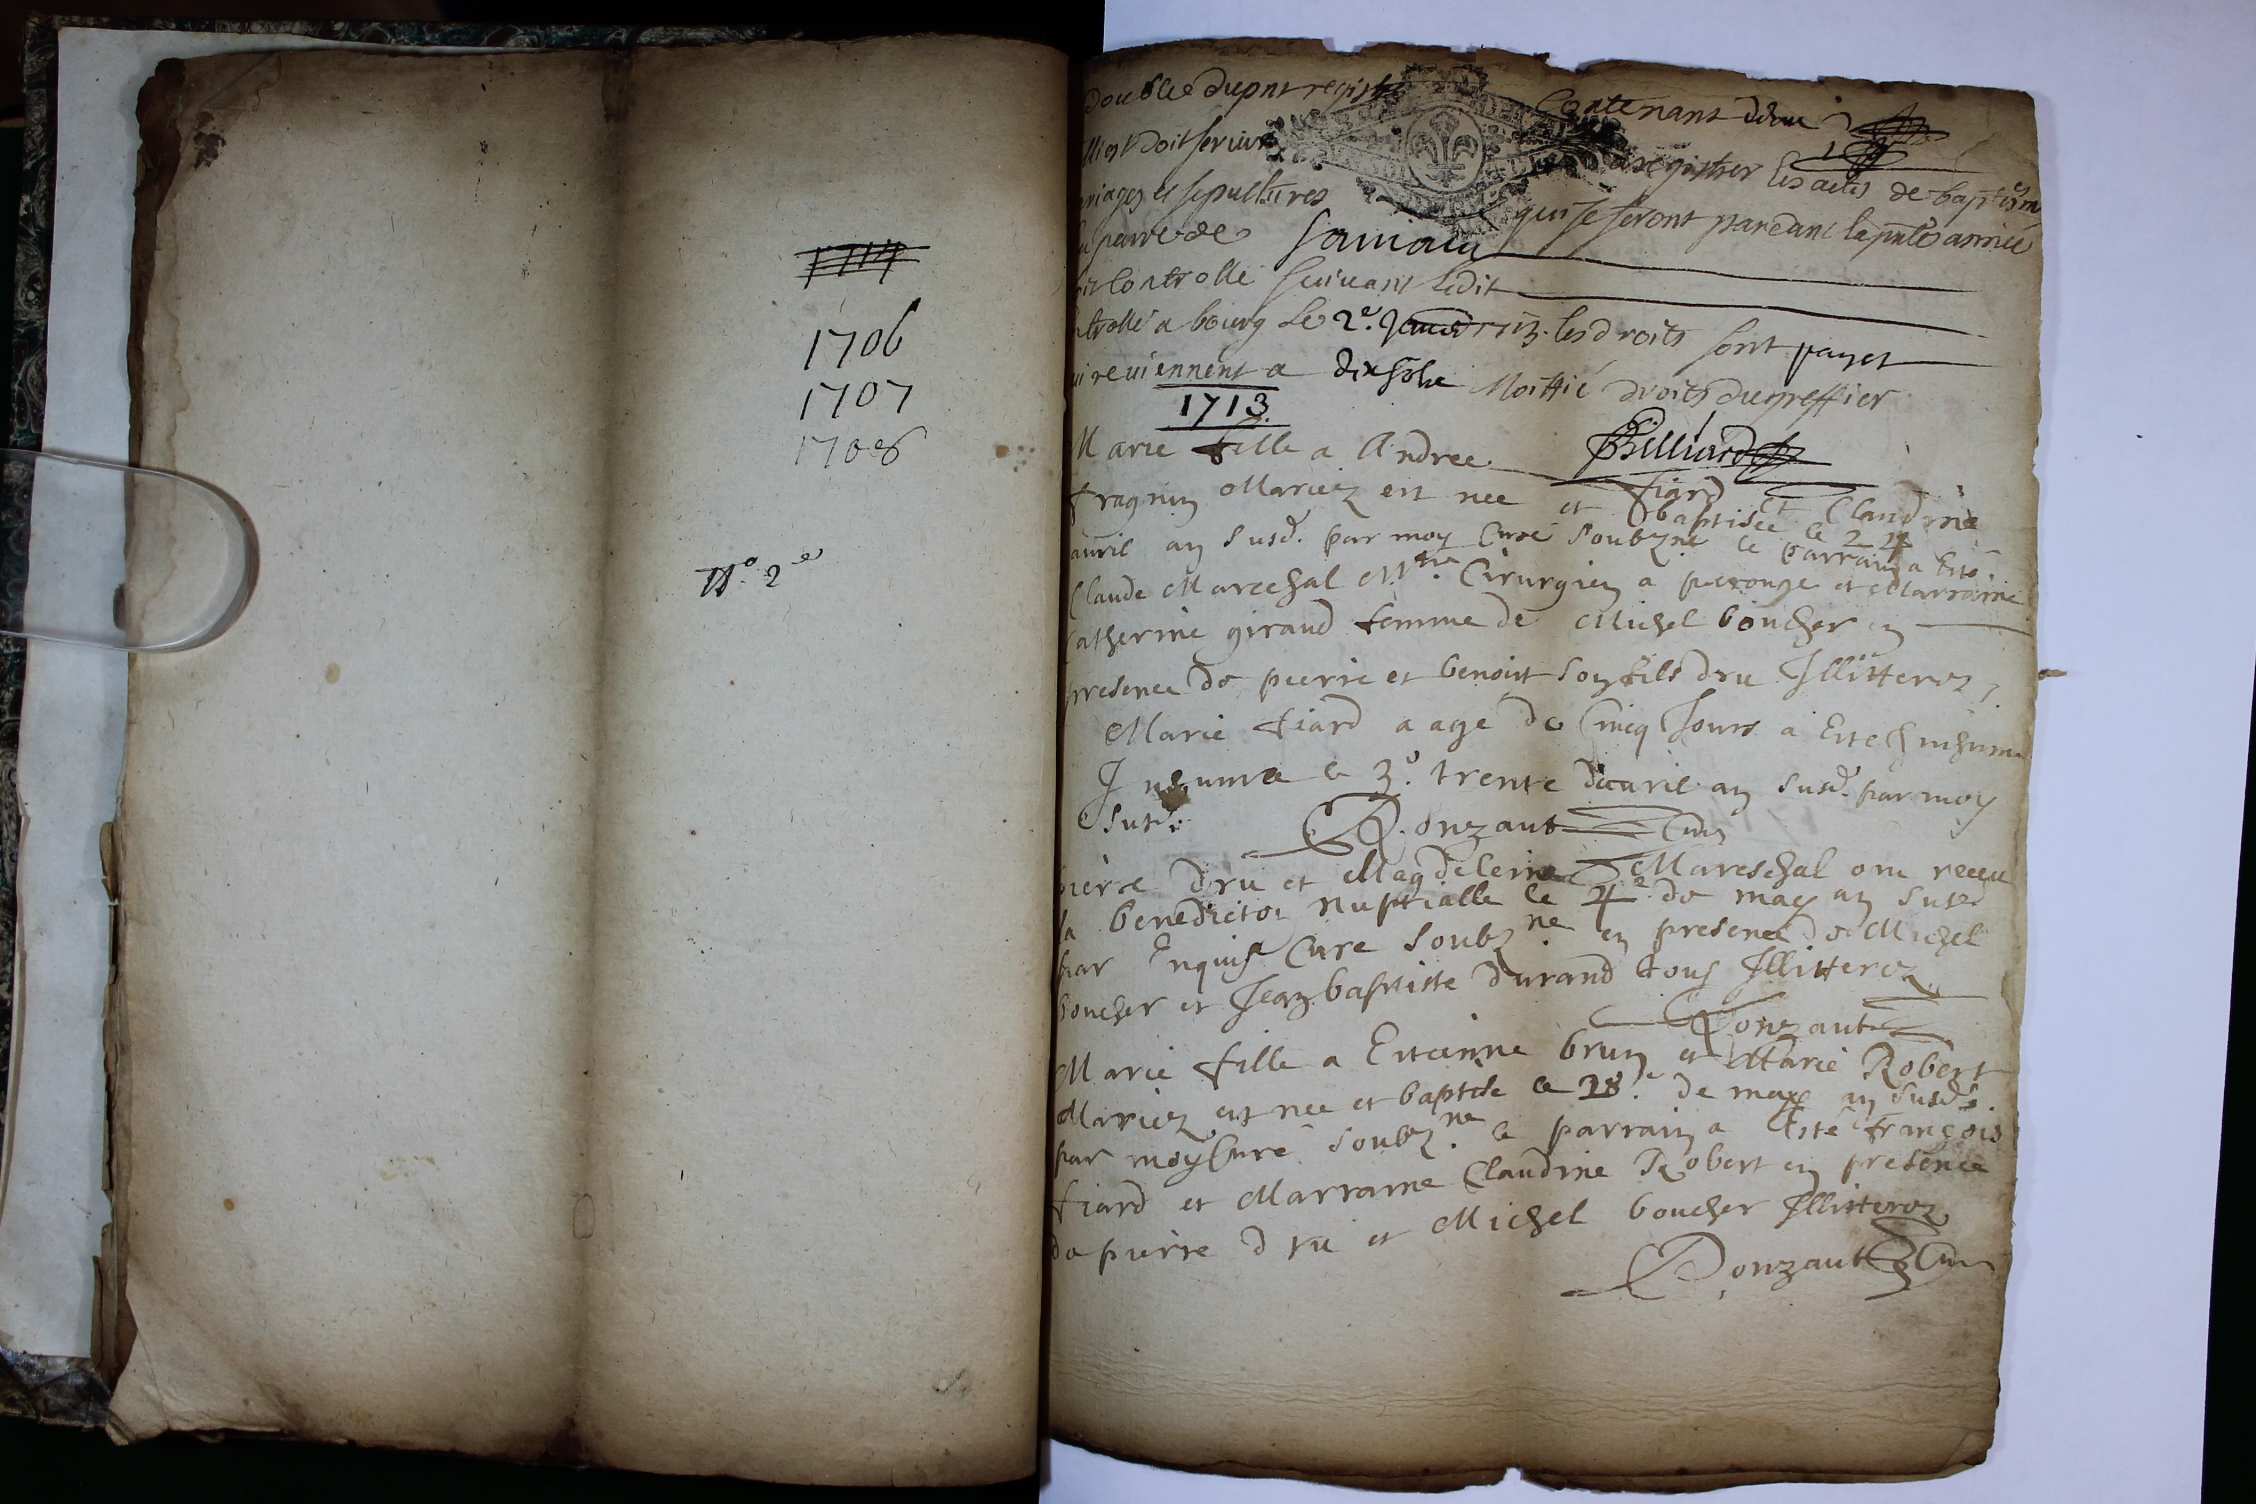 1714
1706
1707
1708
N.° 2e
double du pnt registre Contenant deux
doit servir a registrer les actes de baptesm
mariages et sepultures qui se feront pandant la pnte année
parre de Saviaux
Controllé suivant ledit
Controllé a bourg le 2e. Janvier 1713. les droits sont payez
qui reviennent a dix sols Moittié droits du greffier
1713.
Billiard
Marie fille a Andree fiard et Claudine
fragnin Mariez est nee et baptisée le 24
avril an susd. par moy Curé Soubzné le parrain a Esté
Claude Mareschal Mtre. Cirurgien a perouge et Marraine
Catherine giraud femme de Michel boucher en
presence de pierre et benoist son fils dru Illitteréz
Marie fiard aagé de Cincq Jours a Esté Inhumé
Inhumé le 30. trente d'avril an susd. par moy
Susd. Donzaut Curé
pierre dru et Magdeleine Mareschal ont receu
la benediction nuptialle le 4e. de may an susd
par Curé Soubzné. en presence de Michel
boucher et Jean baptiste durand tous Illitteréz
Donzaut
Marie fille a Estienne brun et Marie Robert
Mariez est née et baptisé le 28e. de may an susd.
par moy Curé Soubzné. le parrain a Esté françois
fiard et Marraine Claudine Robert en presence
de pierre dru et Michel boucher Illitteréz
Donzaut Curé